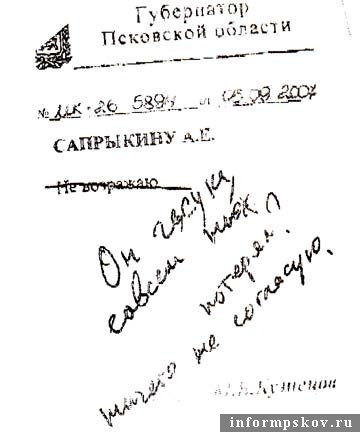 Губернатор
Псковской области
№ МК-26 5894 от 05.09.2007
САПРЫКИНУ А.Е.
Не возражаю
Он
совсем
потерял.
ничего не согласую.
М.В.Кузнецов
informpskov.ru